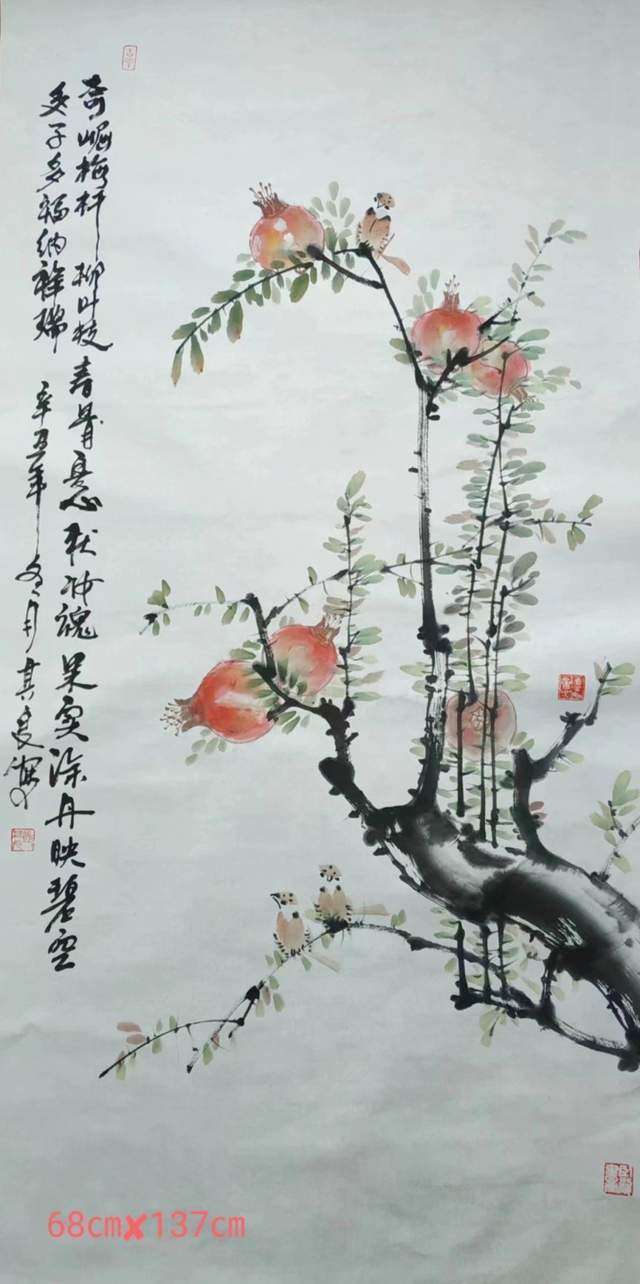 奇崛梅杆柳叶枝青骨虬心秋妆魂果实深丹映碧空
多子多福纳祥瑞 辛丑年冬月其
68cm✖137cm